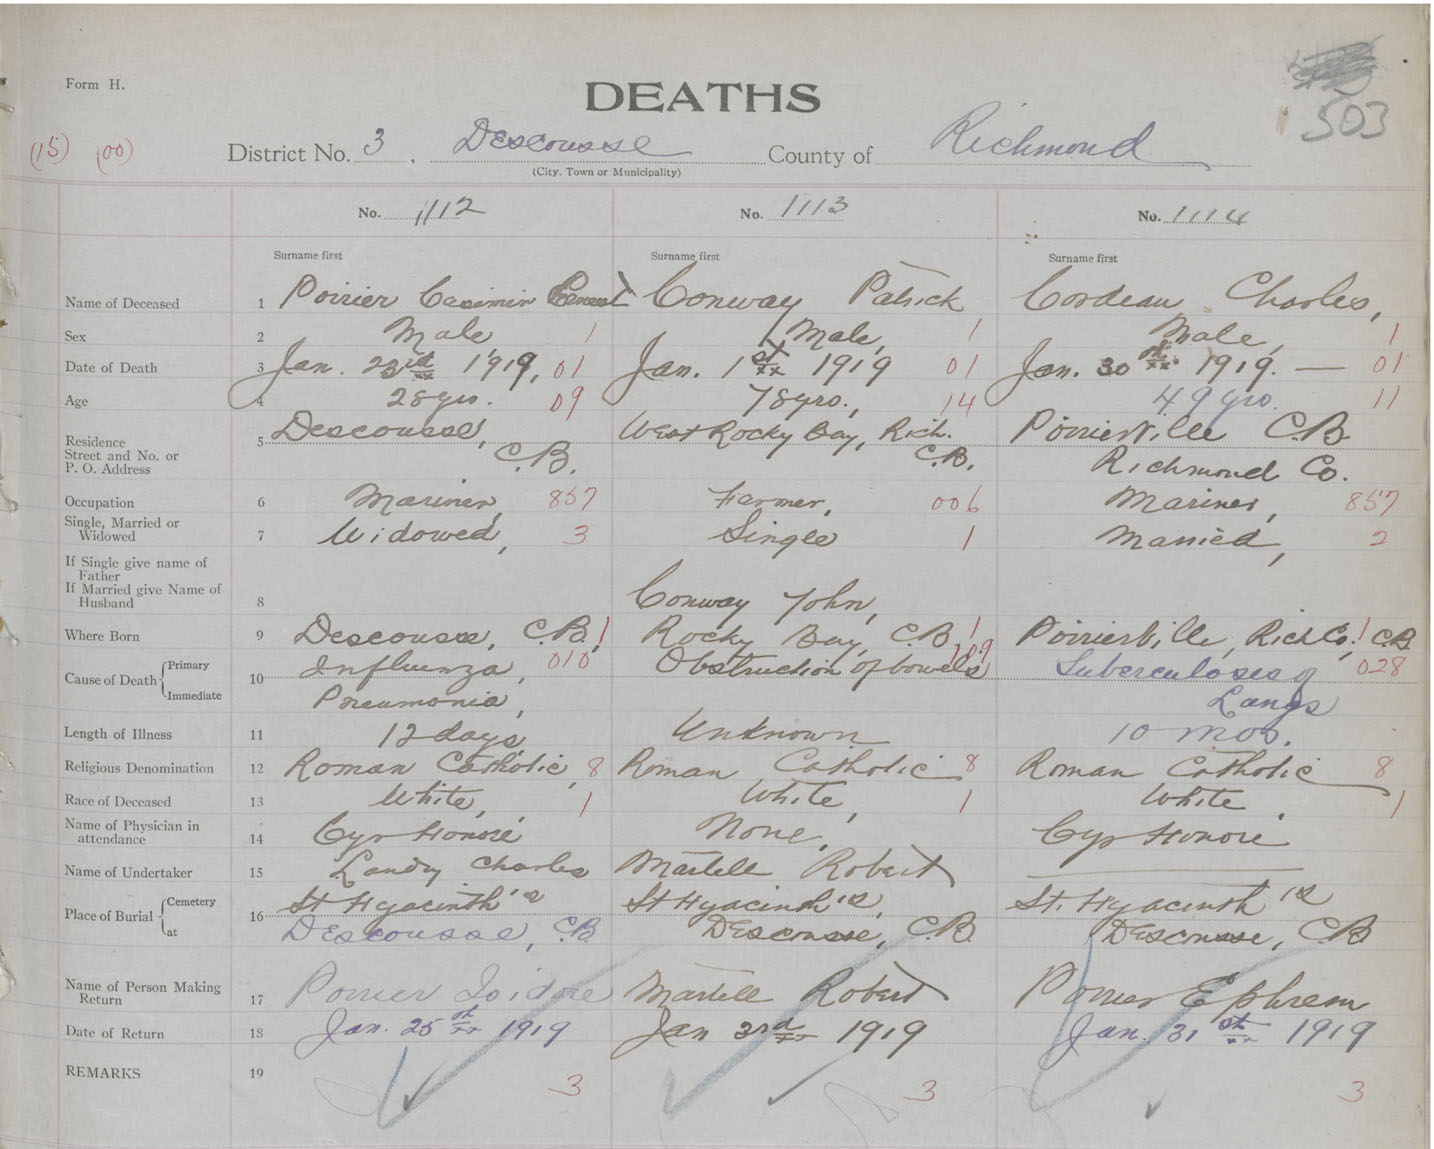 Form H.
DEATHS
503
(15) (00)
District No. 3, Descousse County of Richmond
(City, Town or Municipality)
No. 1112 No. 1113 No. 1114
Surname first Surname first Surname first
Name of Deceased 1 Poirier Casimir Conway Patrick Cordeau Charles,
Sex 2 Male 1 Male, 1 Male, 1
Date of Death 3 Jan. 23rd 1919, 01 Jan. 1st 1919 01 Jan. 30th 1919. — 01
Age 4 28 yrs. 09 78 yrs., 14 49 yrs. 11
Residence 5 Descousse, West Rocky Bay, Rich. Poirierville C.B.
Street and No. or C.B. C.B. Richmond Co.
P. O. Address
Occupation 6 Mariner, 857 Farmer, 006 Mariner, 857
Single, Married or
Widowed 7 Widowed, 3 Single 1 Married, 2
If Single give name of
Father
If Married give Name of
Husband 8 Conway John,
Where Born 9 Descousse, C.B. 1 Rocky Bay, C.B 1 Poirierville, Rich Co, 1 C.B.
Cause of Death Primary 10 Influenza, 010 Obstruction of bowels 109 Tuberculoses of 028
Immediate Pneumonia, Lungs
Length of Illness 11 12 days, Unknown 10 mos.
Religious Denomination 12 Roman Catholic, 8 Roman Catholic 8 Roman Catholic 8
Race of Deceased 13 White, 1 White, 1 White, 1
Name of Physician in
attendance 14 Cyr Honoré None, Cyr Honoré
Name of Undertaker 15 Landy Charles Martell Robert
Place of Burial Cemetery 16 St Hyacinth's St Hyacinth's, St. Hyacinth's
at Descousse, C.B. Descousse, C.B. Descousse, C.B
Name of Person Making
Return 17 Poirier Isidore Martell Robert Poirier Ephrem
Date of Return 18 Jan. 25th 1919 Jan 3rd 1919 Jan. 31st 1919
REMARKS 19 3 3 3